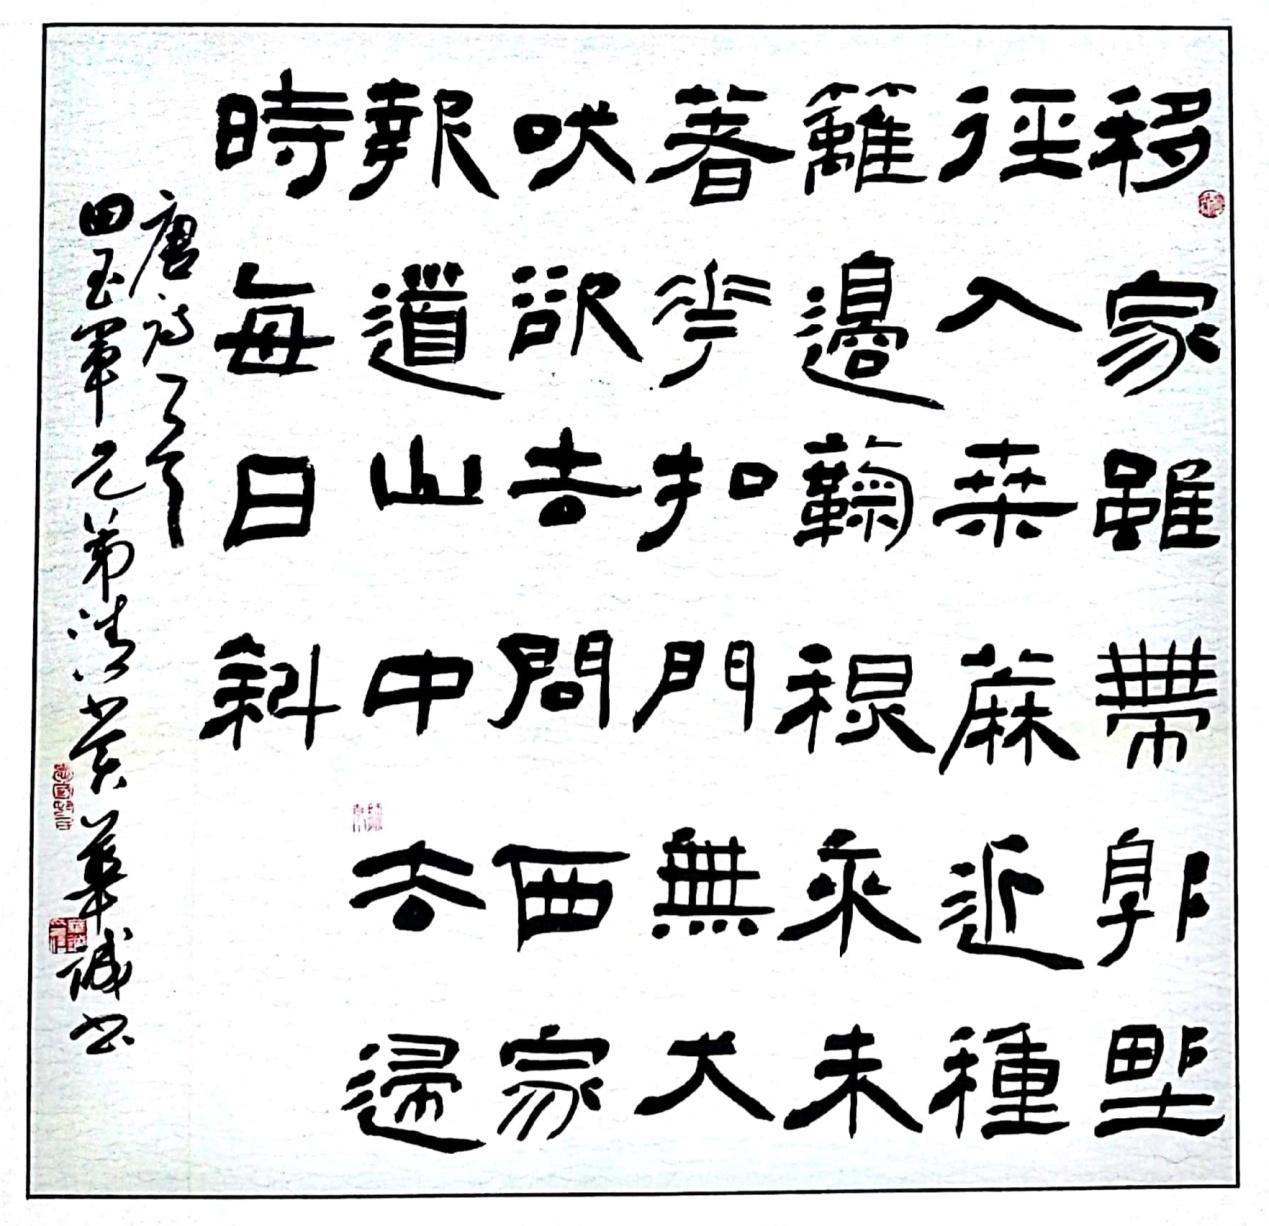 移家雖帶郭野
徑入桒麻近種
籬邊蘜秋來未
著花扣門無犬
吠欲去問西家
報道山中去歸
時每日斜
唐詩一首
田玉軍兄弟清賞華誠書